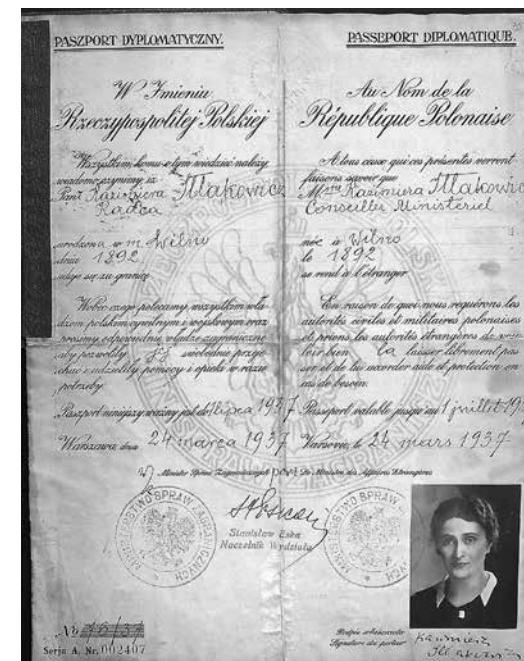 PASZPORT DYPLOMATYCZNY.
W Imieniu
Rzeczypospolitej Polskiej
Wszystkim, komu o tym wiedzieć należy,
wiadomo czynimy, iż
Pani Kazimiera Iłłakowicz
Radca
urodzona w m. Wilnie
dnia 1892
udaje się za granicę
Wobec czego polecamy wszystkim wła-
dzom polskim cywilnym i wojskowym oraz
prosimy odpowiednie władze zagraniczne
aby pozwoliły jej swobodnie przeje-
chać i udzieliły pomocy i opieki w razie
potrzeby.
Paszport niniejszy ważny jest do 1 lipca 1937
Warszawa, dnia 24 marca 1937
PASSEPORT DIPLOMATIQUE.
Au Nom de la
République Polonaise
A tous ceux qui ces présentes verront
faisons savoir que
Mme Kazimiera Iłłakowicz
Conseiller Ministeriel
née à Wilno
le 1892
se rend à l'étranger
En raison de quoi nous requérons les
autorités civiles et militaires polonaises
et prions les autorités étrangères de vou-
loir bien la laisser librement pas-
ser et de lui accorder aide et protection en
cas de besoin.
Passeport valable jusqu'au 1 juillet
Varsovie, le 24 mars 1937
Minister Spraw Zagranicznych
Le Ministre des Affaires Etrangères
MINISTERSTWO SPRAW ZAGRANICZNYCH
MINISTERSTWO SPRAW
Stanisław Eska
Naczelnik Wydziału
Serja A. Nr. 002407
Podpis właściciela
Signature du porteur